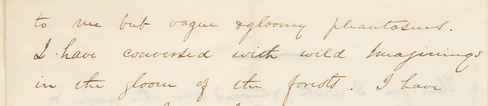 to me but vague & gloomy phantasms.
I have conversed with wild Imaginings
in the gloom of the forests. I have